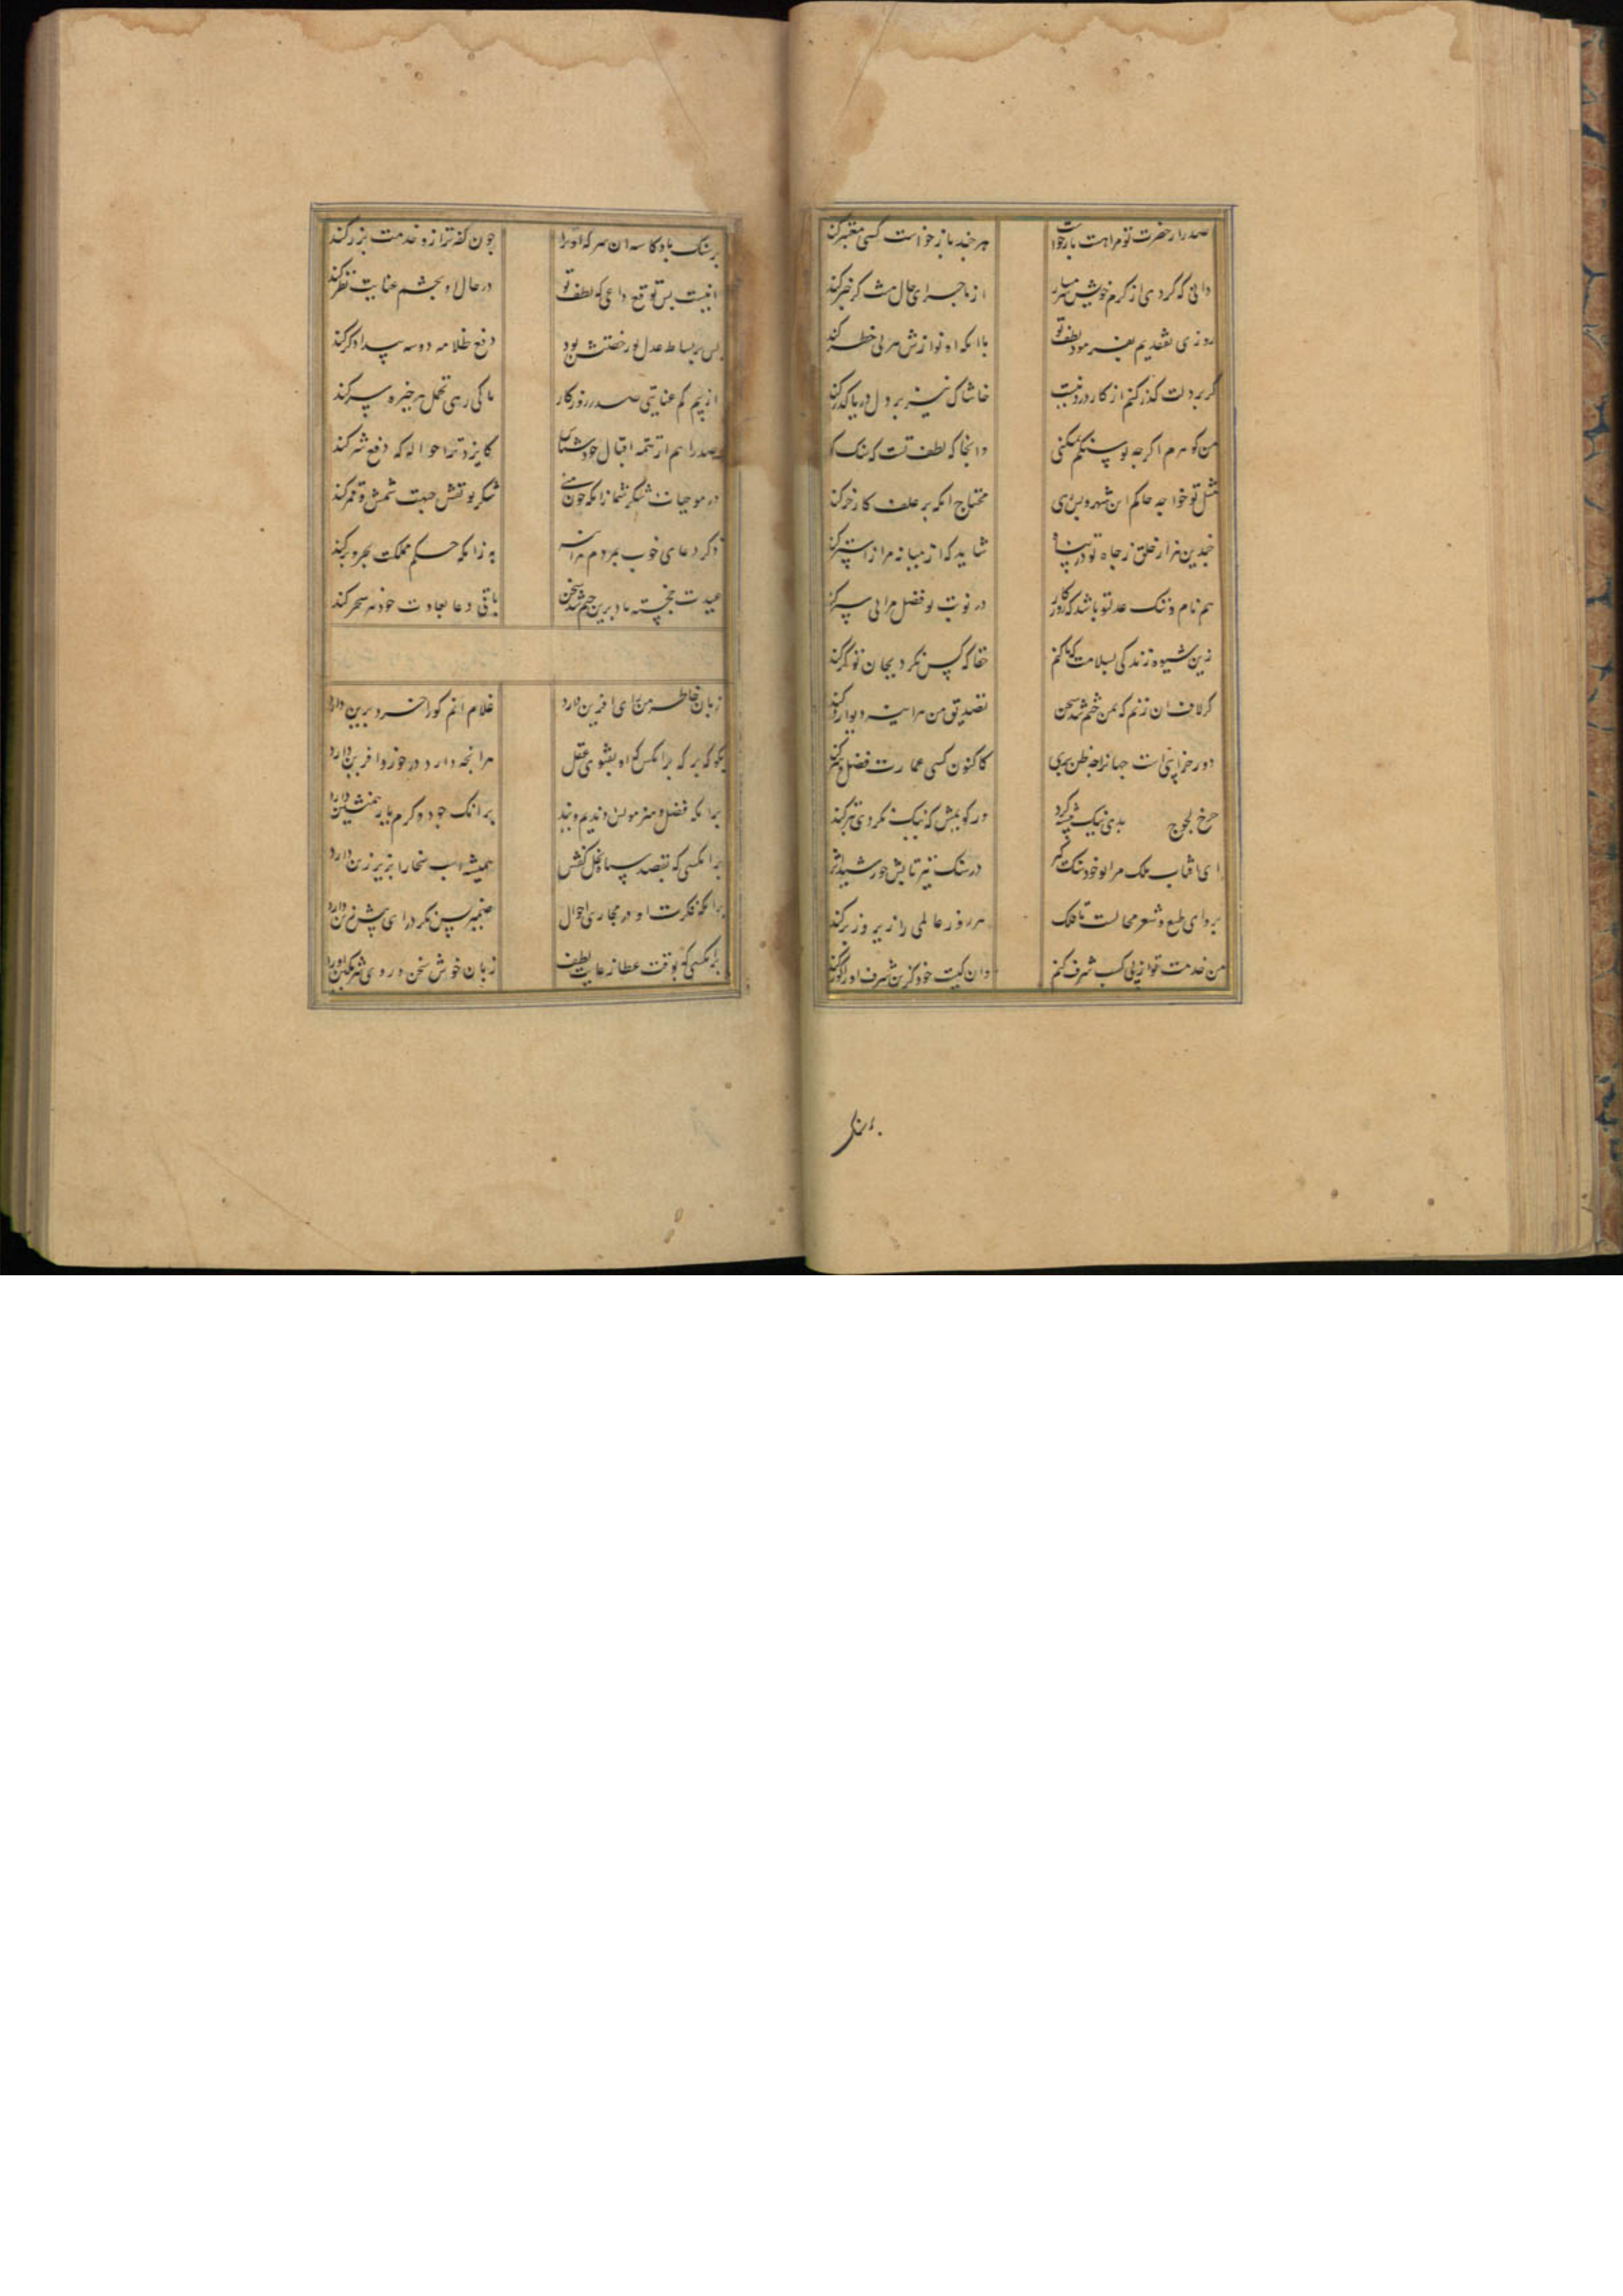 صدرا ز حضرت تو مراهست بازخواست هر چند بازخواست کسی معتبر کند
دانی که کردی از کرم خویش از ماجرای حال منت کر خبر کند
روزی بفرمود لطف تو با انکه او نوازش هر بی خطر کند
کر بر دلت کذر کنم از کار دور نیست خاشاک نیز بر دل دریا کذر کند
من کوهرم اکرچه تو وانجا که لطف تست که سنک
مثل تو خواجه حاکم این شهر و پس رهی محتاج انکه بر علف کار خر کند
چندین هزار خلق ز جاه تو در پناه شاید که از میانه مرا
هم نام و ننک عدل تو باشد که روزکار در نوبت تو فضل مرا پی سپر کند
زین شیوه زندکی بسلامت که حقا که کس نکرد بجان تو کر کند
کر لاف ان زنم که بمن ختم شد سخن تصدیق من هر اینه دیوار و در کند
دور خرابی است جهانرا چه ظن بری کاکنون کسی عمارت فضل و هنر کند
چرخ لجوج بدی نیک ور کویمش که نیک نکردی بتر کند
ای افتاب ملک مرا تو خود سنک کیر در سنک نیز تابش خورشید اثر کند
بروای طبع و شعر محالست تا فلک هر روز عالمی را زیر و زبر کند
من خدمت تو از پی کسب شرف کنم وان کیت خود کزین شرف او را
بر سنک باد کاسه ان سر که او ترا چون کفه ترازو خدمت بزر کند
انیست بس توقع داعی که لطف تو در حال او بچشم عنایت نظر کند
پس بر بساط عدل تو رخصتش بود دفع ظلامه دو سه بیدادکر کند
از بیم کم عنایتی صدر روزکار تا کی رهی تحمل هر خیره سر کند
صدرا هم از تتمه اقبال خود شناس کایزد ترا حواله که دفع شر کند
در موجبات شکر شما زانکه چون منی شکر تو نقش جبهت شمس و قمر کند
ذکر دعای خوب بمردم هر اینه به زانکه حکم مملکت بحر و بر کند
عیدت خجسته باد برین ختم شد سخن باقی دعا بعادت خود هر سحر کند
زبان خاطر من رای افرین دارد غلام انم کو را خرد برین دارد
بکو که بر که بر انکس که او بقوت عقل هر انچه دارد در خورد افرین دارد
بر انکه فضل و هنر مونس و ندیم ویند بر انک جود و کرم یار و همنشین دارد
بر انکسی که بقصد سپاه بخل کفش همیشه اسب سخا را بزیر زین دارد
بر انکه فکرت او در مجاری احوال ضمیر پس نکر و رای پیش بین دارد
بر انکسی که بوقت عطا ز غایت لطف زبان خوش سخن و روی شرمکین دارد
بر سنک